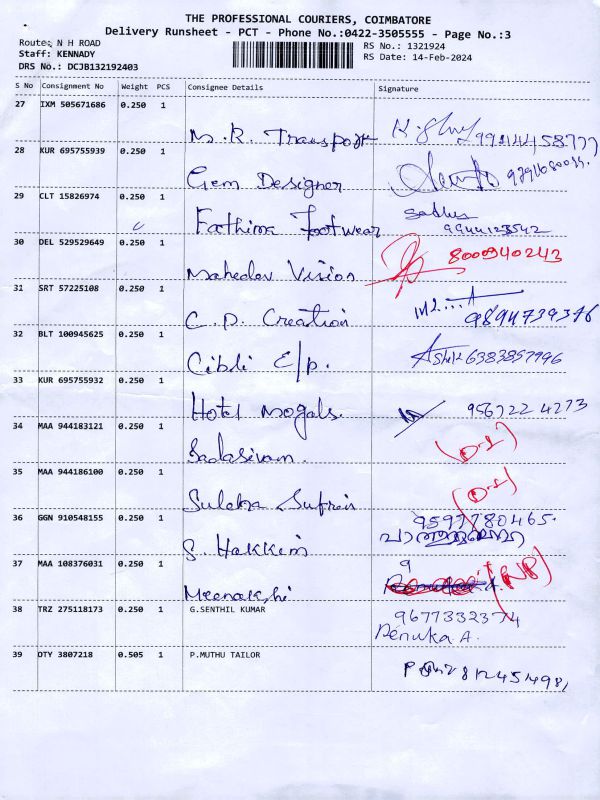 THE PROFESSIONAL COURIERS, COIMBATORE
Delivery Runsheet - PCT - Phone No.:0422-3505555 - Page No.:3
Route: N H ROAD
RS No.: 1321924
Staff: KENNADY
RS Date: 14-Feb-2024
DRS No.: DCJB132192403
S No Consignment No Weight PCS Consignee Details Signature
27 IXM 505671686 0.250 1
M.R. Transport
28 KUR 695755939 0.250 1
Gem Designer
29 CLT 15826974 0.250 1
Fathima Footwear Sathya
9944123542
30 DEL 529529649 0.250 1
Mahedev Vision 8000940243
31 SRT 57225108 0.250 1
C.P. Creation 9894739376
32 BLT 100945625 0.250 1
Cibli E/p. 6383857996
33 KUR 695755932 0.250 1
Hotel Mogals. 9567224273
34 MAA 944183121 0.250 1
Sadasivam. (D-L)
35 MAA 944186100 0.250 1
(D-L)
36 GGN 910548155 0.250 1 9597780465.
S. Hakkim
37 MAA 108376031 0.250 1 9
Meenakshi (NP)
38 TRZ 275118173 0.250 1 G.SENTHIL KUMAR
9677332374
Renuka A.
39 DTY 3807218 0.505 1 P.MUTHU TAILOR